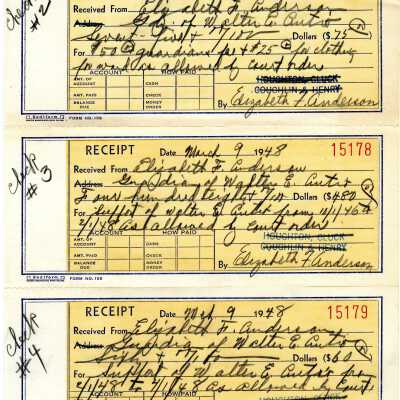 check #2
Received From Elizabeth F. Anderson
Address Gdn. of Walter E. Autio
Seventy-five & no/100 Dollars $75
For $50 guardians fee & $25 for clothing
for ward as allowed by court order
ACCOUNT HOW PAID
AMT. OF ACCOUNT CASH
AMT. PAID CHECK
BALANCE DUE MONEY ORDER
HOUGHTON, GLUCK
COUGHLIN & HENRY
By Elizabeth F. Anderson
Rediform FORM NO. 108
check #3
RECEIPT Date March 9 1948 15178
Received From Elizabeth F. Anderson
Address Guardian of Walter E. Autio
Four hundred eighty & no/100 Dollars $480
For Support of Walter E. Autio from 11/1/46 to
2/1/48 As allowed by court order
ACCOUNT HOW PAID
AMT. OF ACCOUNT CASH
AMT. PAID CHECK
BALANCE DUE MONEY ORDER
HOUGHTON, GLUCK
COUGHLIN & HENRY
By Elizabeth F. Anderson
Rediform FORM NO. 108
Check #4
RECEIPT Date Mch 9 1948 15179
Received From Elizabeth F. Anderson
Address Guardian of Walter E. Autio
Sixty & no/100 Dollars $60
For Support of Walter E. Autio for
2/1/48 to 7/1/48 As allowed by Court